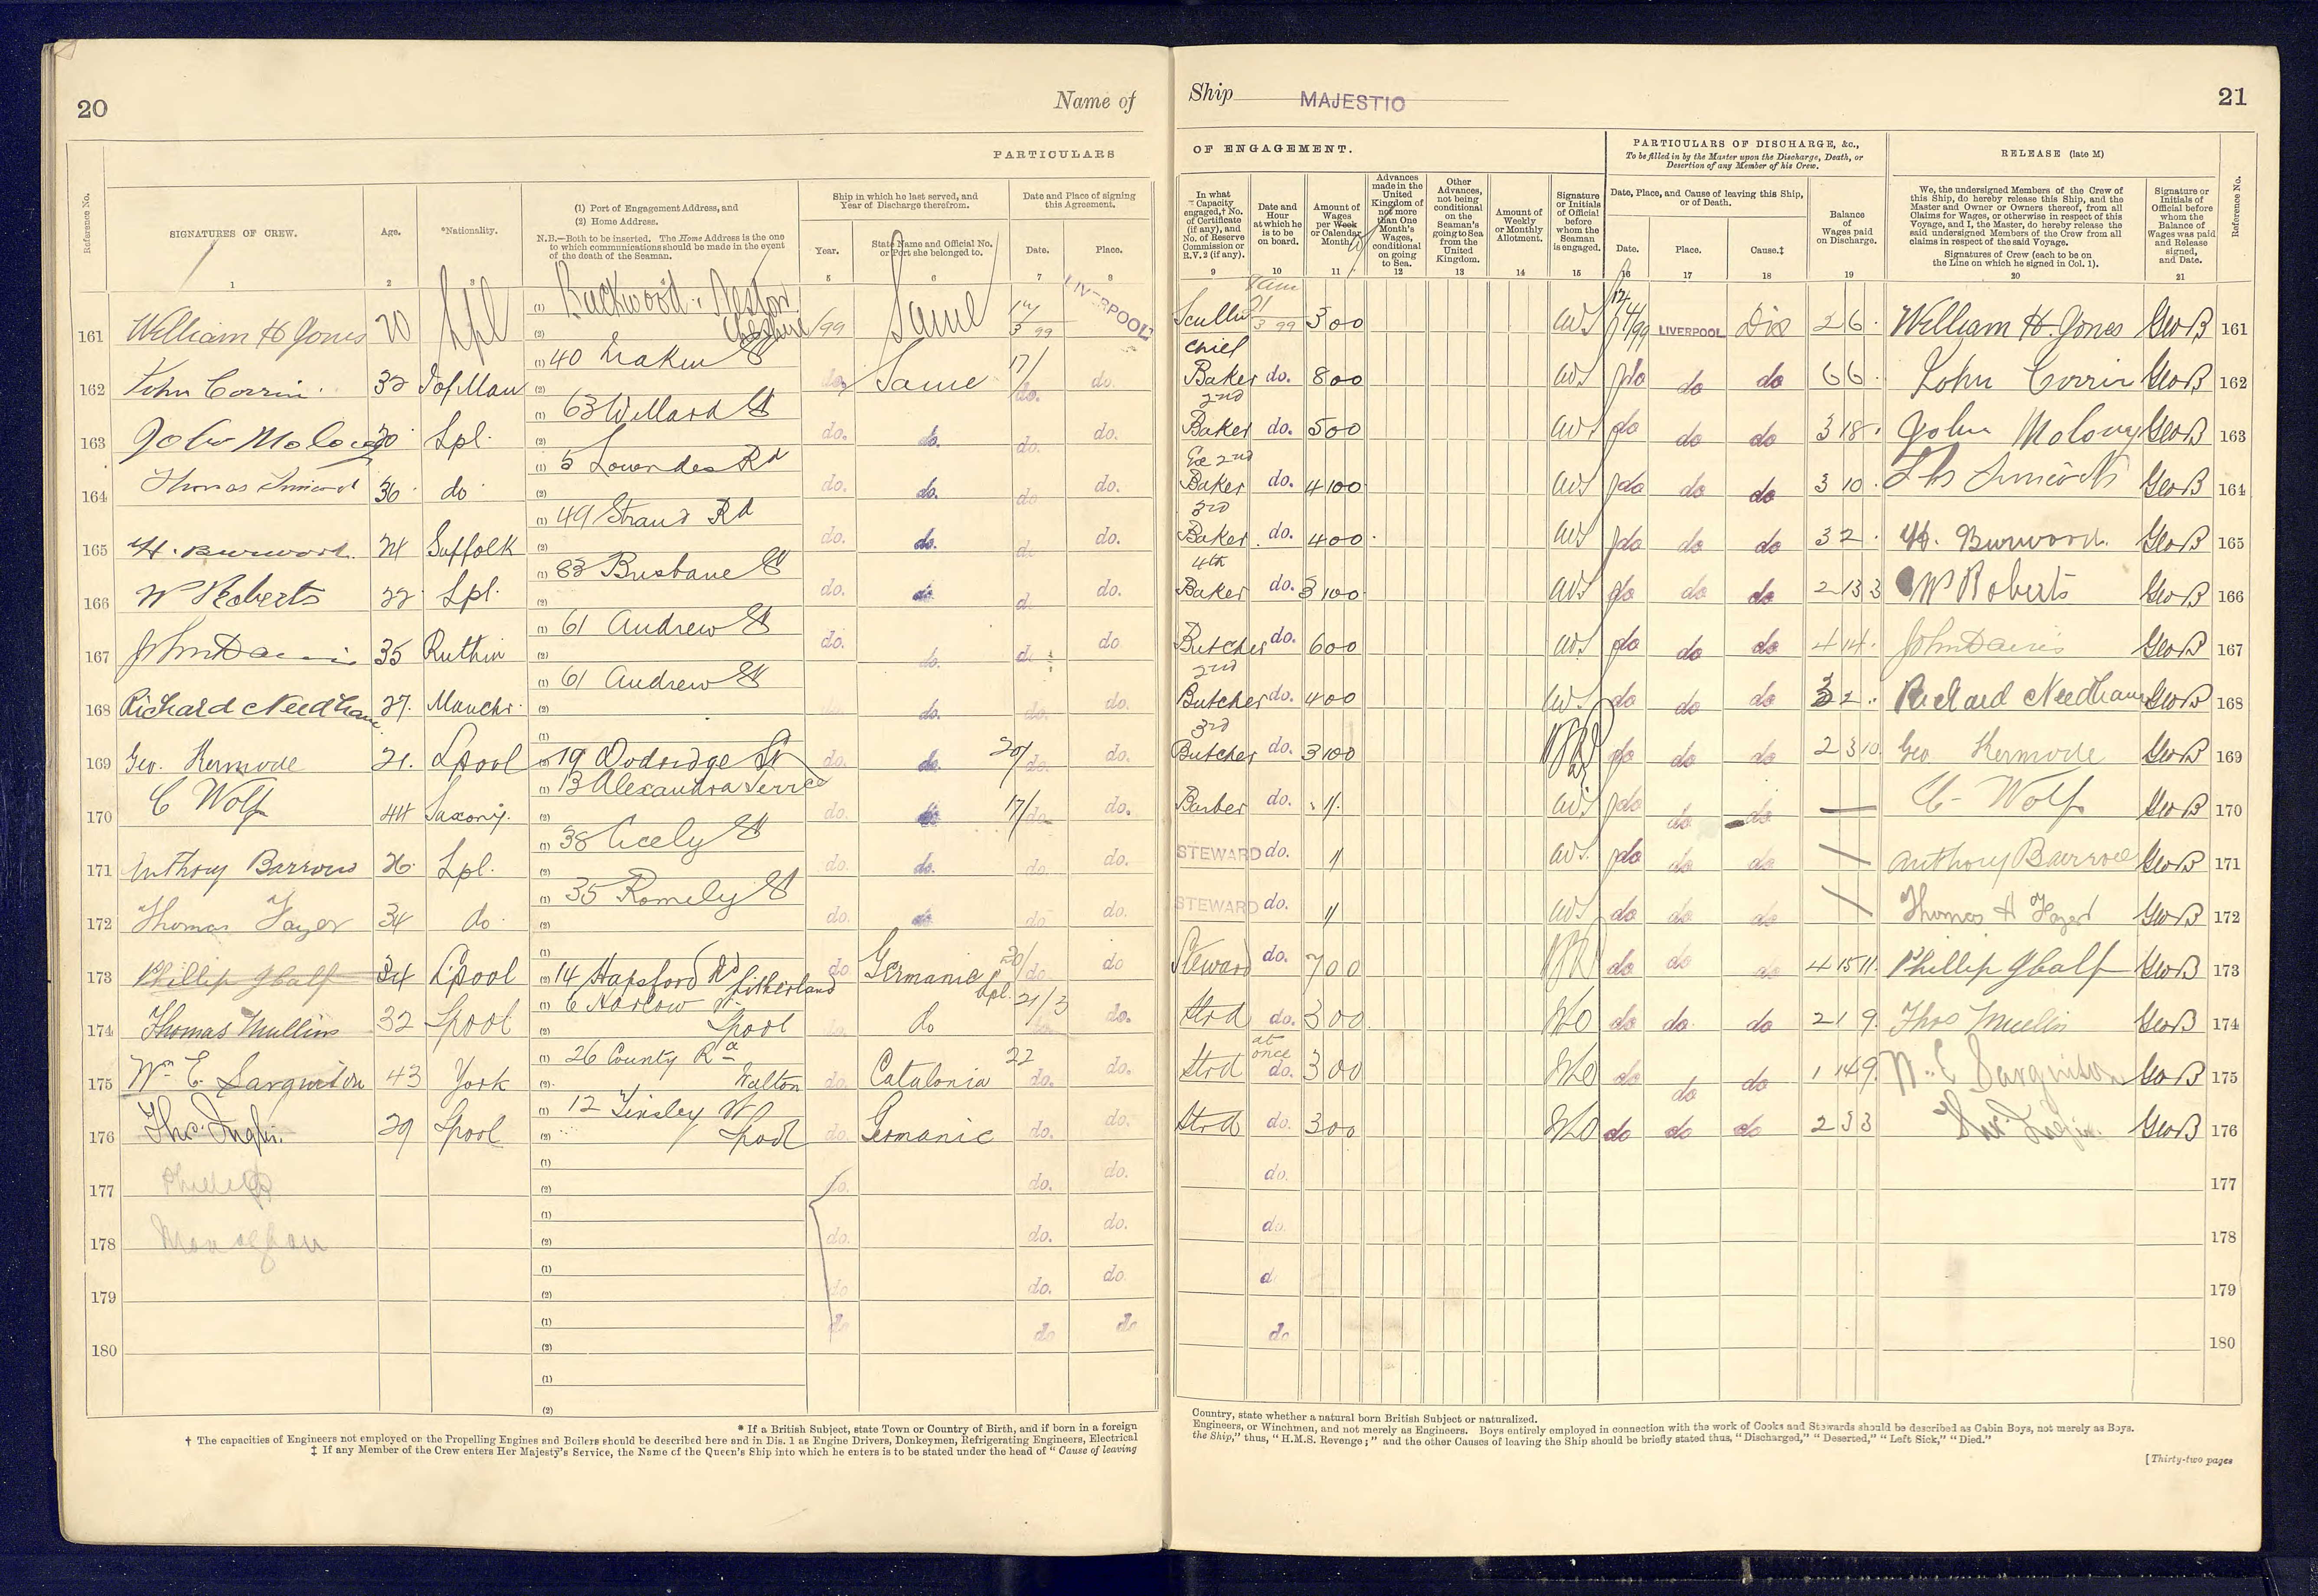 20
Name of
Ship MAJESTIC
21
PARTICULARS
OF ENGAGEMENT.
PARTICULARS OF DISCHARGE, &c.,
To be filled in by the Master upon the Discharge, Death, or
Desertion of any Member of his Crew.
RELEASE (late M)
Reference No.
SIGNATURES OF CREW.
Age.
*Nationality.
(1) Port of Engagement Address, and
(2) Home Address.
N.B.—Both to be inserted. The Home Address is the one
to which communications should be made in the event
of the death of the Seaman.
Ship in which he last served, and
Year of Discharge therefrom.
Year.
State Name and Official No.
or Port she belonged to.
Date and Place of signing
this Agreement.
Date.
Place.
In what
Capacity
engaged,† No.
of Certificate
(if any), and
No. of Reserve
Commission or
R.V. 2 (if any).
Date and
Hour
at which he
is to be
on board.
Amount of
Wages
per Week
or Calendar
Month.
Advances
made in the
United
Kingdom of
not more
than One
Month's
Wages,
conditional
on going
to Sea.
Other
Advances,
not being
conditional
on the
Seaman's
going to Sea
from the
United
Kingdom.
Amount of
Weekly
or Monthly
Allotment.
Signature
or Initials
of Official
before
whom the
Seaman
is engaged.
Date, Place, and Cause of leaving this Ship,
or of Death.
Date.
Place.
Cause.‡
Balance
of
Wages paid
on Discharge.
We, the undersigned Members of the Crew of
this Ship, do hereby release this Ship, and the
Master and Owner or Owners thereof, from all
Claims for Wages, or otherwise in respect of this
Voyage, and I, the Master, do hereby release the
said undersigned Members of the Crew from all
claims in respect of the said Voyage.
Signatures of Crew (each to be on
the Line on which he signed in Col. 1).
Signature or
Initials of
Official before
whom the
Balance of
Wages was paid
and Release
signed,
and Date.
Reference No.
1 2 3 5 6 7 8 9 10 11 12 13 14 15 16 17 18 19 20 21
161 William H Jones 20 Lpl (1) (2) Cheshire /99 Same 17/3 99 LIVERPOOL 3 00 LIVERPOOL Dis 2 6 William H. Jones Geo B 161
162 John Corrin 32 I of Man (1) 40 St (2) do. Same 17/do. do. Chief Baker do. 8 00 do do do 6 6 John Corrin Geo B 162
163 John Molony 30 Lpl. (1) 63 Willard St (2) do. do. do. do. 2nd Baker do. 5 00 do do do 3 18 John Molony Geo B 163
164 Thomas 36 do (1) 5 Lowndes Rd (2) do. do. do do. Baker do. 4 10 0 do do do 3 10 Geo B 164
165 H. Burwood. 24 Suffolk (1) 49 Strand Rd (2) do. do. d do. 3rd Baker do. 4 00 do do do 3 2 H. Burwood. Geo B 165
166 W Roberts 22 Lpl. (1) 83 Brisbane St (2) do. do. d do. 4th Baker do. 3 10 0 do do do 2 13 3 W Roberts Geo B 166
167 John Davis 35 Ruthin (1) 61 Andrew St (2) do. do. d do Butcher do. 6 00 do do do 4 14 John Davis Geo B 167
168 Richard Needham 27. Manchr. (1) 61 Andrew St (2) do. do. do. 2nd Butcher do. 4 00 do do do 3 2 Richard Needham Geo B 168
169 Geo. Kermode 21. Lpool (1) (2) 19 Dodridge St do. do. 20/do. do. 3rd Butcher do. 3 10 0 do do do 2 3 10 Geo Kermode Geo B 169
170 C Wolf 44 Saxony. (1) 13 Alexandra Terrce (2) do. do. 17/do do. Barber do. 1/. do do do — C. Wolf Geo B 170
171 Anthony Barrow 26 Lpl. (1) 38 Cicely St (2) do. do. do. do. STEWARD do. 1/ do do do Anthony Barrow Geo B 171
172 Thomas 34 do (1) 35 Romely St (2) do. do do do. STEWARD do. 1/ do do do Thomas Geo B 172
173 Phillip 34 Lpool (1) (2) 14 Hapsford Rd Litherland do Germanic Lpl. 20/do. do Steward do. 7 00 do do do 4 15 11 Phillip Geo B 173
174 Thomas Mullin 32 Lpool (1) 6 Harlow St. (2) Lpool do 21/3 do. Strd do. 3 00 do do do 2 1 9 Thos Mullin Geo B 174
175 Wm E. Sarginson 43 York (1) 26 County Rd (2) Walton do. Catalonia 22 do. do. Strd at once do. 3 00 do do do 1 14 9 W. E Sarginson Geo B 175
176 Tho. 29 Lpool (1) 12 Tinsley St (2) Lpool do. Germanic do. do. Strd do. 3 00 do do do 2 3 3 Geo B 176
177 (1) (2) do. do. do. do. 177
178 Monaghan (1) (2) do. do. do. do. 178
179 (1) (2) do do. do. d 179
180 (1) (2) do do do do 180
(1)
(2)
* If a British Subject, state Town or Country of Birth, and if born in a foreign Country, state whether a natural born British Subject or naturalized.
† The capacities of Engineers not employed on the Propelling Engines and Boilers should be described here and in Dis. 1 as Engine Drivers, Donkeymen, Refrigerating Engineers, Electrical Engineers, or Winchmen, and not merely as Engineers. Boys entirely employed in connection with the work of Cooks and Stewards should be described as Cabin Boys, not merely as Boys.
‡ If any Member of the Crew enters Her Majesty's Service, the Name of the Queen's Ship into which he enters is to be stated under the head of "Cause of leaving the Ship," thus, "H.M.S. Revenge;" and the other Causes of leaving the Ship should be briefly stated thus, "Discharged," "Deserted," "Left Sick," "Died."
[Thirty-two pages